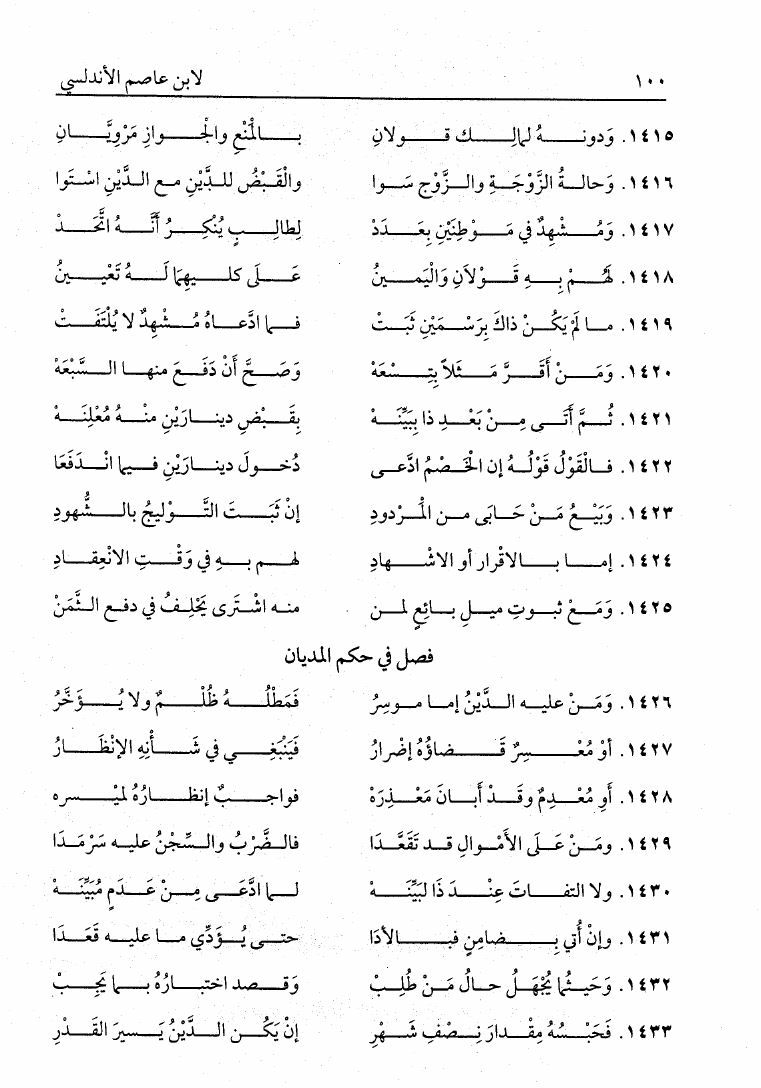 ١٠٠ لابن عاصم الأندلسي
١٤١٥. وَدونـهُ لمالِـك قـولانِ بـالمنْعِ والجَـوازِ مَرْويَّـانِ
١٤١٦. وَحالـةُ الزَّوْجَـةِ والـزَّوْجِ سَـوا والْقَبْضُ للـدَّيْنِ مـع الـدَّيْنِ اسْـتَوا
١٤١٧. وَمُـشْهِدٌ في مَـوْطِنَيْنِ بِعَـدَدْ لِطالِـبٍ يُنْكِـرُ أنَّـهُ اتَّحَـدْ
١٤١٨. لَهُـمْ بِـهِ قَـوْلاَنِ وَالْيَمـينُ عَـلَى كلـيهِمَا لَـهُ تَعْيـينُ
١٤١٩. مـا لَمْ يَكُـنْ ذاكَ بِرَسْـمَيْنِ ثَبَـتْ فـما ادَّعـاهُ مُـشْهِدٌ لا يُلْتَفَـتْ
١٤٢٠. وَمَـنْ أقَـرَّ مَـثَلاً بِتِـسْعَهْ وَصَـحَّ أنْ دَفَـعَ منهـا الـسَّبْعَهْ
١٤٢١. ثُـمَّ أتَـى مِـنْ بَعْـدِ ذا بِبَيِّنَـهْ بِقَـبْضِ دينـارَيْنِ منْـهُ مُعْلِنَـهْ
١٤٢٢. فـالْقَوْلُ قَوْلُـهُ إن الخَـصْمُ ادَّعـى دُخُـولَ دينـارَيْنِ فـيما انْـدَفَعَا
١٤٢٣. وَبَيْـعُ مَـنْ حَـابَى مـن المْـردودِ إنْ ثَبَـتَ التَّـوْليجُ بالـشُّهودِ
١٤٢٤. إمـا بـالاقْرار أو الاشْـهادِ لهـم بـهِ في وَقْـتِ الانْعِقـادِ
١٤٢٥. وَمَـعْ ثبـوتِ ميـلِ بـائعٍ لمـن منـه اشْترى يَحْلِفُ في دفـع الـثَّمَنْ
فصل في حكم المديان
١٤٢٦. وَمَـنْ عليـه الـدَّيْنُ إمـا موسِرُ فَمَطْلُـهُ ظُلْـمٌ ولا يُـؤَخَّرُ
١٤٢٧. أوْ مُعْـسِرٌ قَـضاؤُهُ إضْرارُ فَيَنْبَغِـي في شَـأْنِهِ الإنْظَـارُ
١٤٢٨. أو مُعْـدِمٌ وقَـدْ أبـانَ مَعْـذِرَهْ فواجـبٌ إنظـارُهُ لمَيْـسره
١٤٢٩. ومَـنْ عَـلَى الأمْـوالِ قـد تَقَعَّـدَا فالـضَّرْبُ والـسِّجْنُ عليـه سَرْمَـدَا
١٤٣٠. ولا التفـاتَ عِنْـدَ ذَا لبَيِّنَـهْ لـما ادَّعَـى مِـنْ عَـدَمٍ مُبَيِّنَـهْ
١٤٣١. وإنْ أُتي بِـضامِنٍ فبـالأدَا حتـى يُـؤَدِّي مـا عليـه قَعَـدَا
١٤٣٢. وَحَيـثُما يُجْهَـلُ حـالُ مَـنْ طُلِـبْ وَقـصد اختبـارُهُ بـما يَجِـبْ
١٤٣٣. فَحَبْـسُهُ مِقْـدارَ نِـصْفِ شَـهْرِ إنْ يَكُـن الـدَّيْنُ يَـسيرَ القَـدْرِ